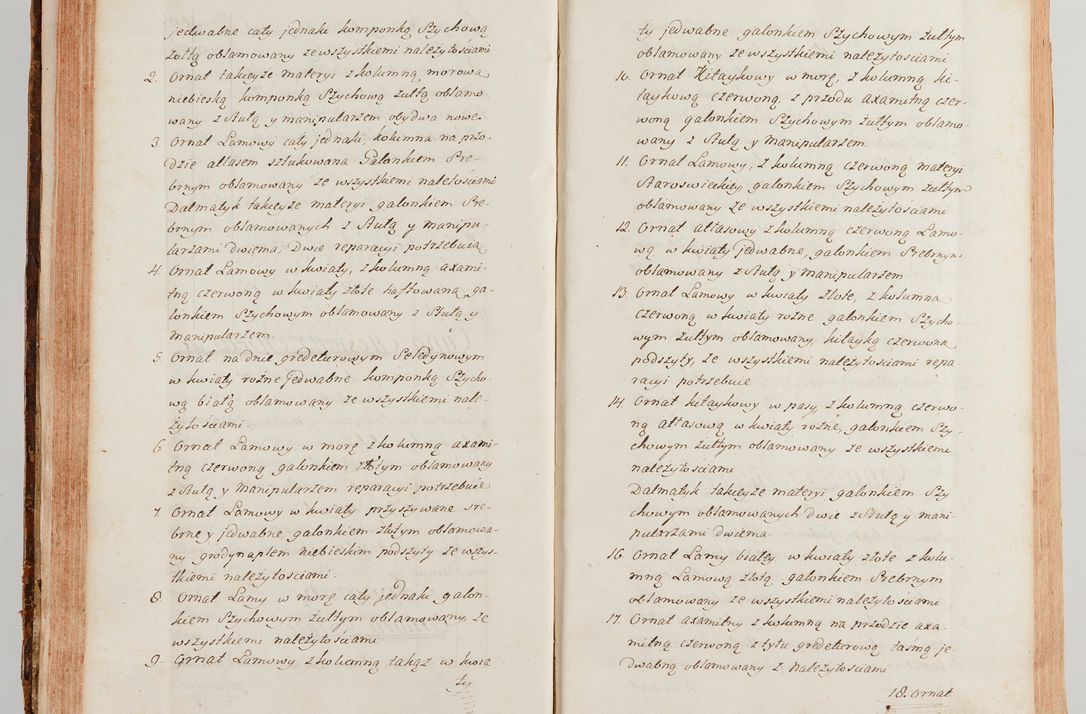 jedwabne cały jednaki komponką Szychową
żółtą oblamowany ze wszystkiemi należytościami
2. Ornat takieyże materyi z kolumną morową
niebieską komponką Szychową żułtą oblamo
wany z Stułą y manipularzem obydwa nowe
3. Ornat Lamowy cały jednaki, kolumna na prżo-
dzie atłasem sztukowana Galonkiem Sre-
brnym oblamowany ze wszystkiemi należościami
Dalmatyk takieyże materyi galonkiem Sre-
brnym oblamowanych z Stułą y manipu-
larzami dwiema, Dwie reparacyi potrzebuią
4. Ornat Lamowy w kwiaty, z kolumną axami-
tną czerwoną w kwiaty złote haftowaną ga-
lonkiem Szychowym oblamowany z Stułą y
Manipularzem
5. Ornat na dnie grodeturowym Seledynowym
w kwiaty rożne jedwabne komponką Szycho-
wą białą oblamowany ze wszystkiemi nale-
żytościami.
6. Ornat Lamowy w morę z kolumną axami-
tną czerwoną galonkiem złotym oblamowany
z Stułą y Manipularzem reparacyi potrzebuie
7. Ornat Lamowy w kwiaty przyszywane sre-
brne y jedwabne, galonkiem złotym oblamowa-
ny grodynaplem niebieskim podszyty ze wszys-
tkiemi należytosciami.
8. Ornat Lamy w morę cały jednaki galon-
kiem Szychowym żułtym oblamowany, ze
wszystkiemi należytościami
9. Ornat Lamowy, z kolumną takąż w kwia
ty
ty jedwabne galonkiem Szychowym żułtym
oblamowany ze wszystkiemi należytościami
10. Ornat Kitaykowy w morę, z kolumną ki-
taykową czerwoną, z przodu axamitną czer-
woną galonkiem Szychowym żułtym oblamo-
wany z Stułą y Manipularzem.
11. Ornat Lamowy, z kolumną czerwoną materyi
Staroswieckiey, galonkiem Szychowym żułtym
oblamowany ze wszystkiemi należytosciami
12. Ornat atłasowy z kolumną czerwoną Lamo-
wą w kwiaty jedwabne, galonkiem Srebrnym
oblamowany z Stułą y Manipularzem
13. Ornat Lamowy w kwiaty złote, z kolumną
czerwoną w kwiaty rożne galonkiem Szycho-
wym żułtym oblamowany kitayką czerwoną
podszyty, ze wszystkiemi należytościami repa
racyi potrzebuie
14. Ornat kitaykowy w pasy, z kolumną czerwo-
ną atłasową w kwiaty rożne, galonkiem Szy-
chowym żułtym oblamowany ze wszystkiemi
należytościami
Dalmatyk takieyże materyi galonkiem Szy
chowym oblamowanych dwie z Stułą y mani
pularzami dwiema.
16. Ornat Lamy białey w kwiaty złote z kolu-
mną Lamową złotą galonkiem Srebrnym
oblamowany ze wszystkiemi należytościami
17. Ornat axamitny z kolumną na przodzie axa-
mitną czerwoną z tyłu grodeturową taśmą je-
dwabną oblamowany z należytościami
18. Ornat